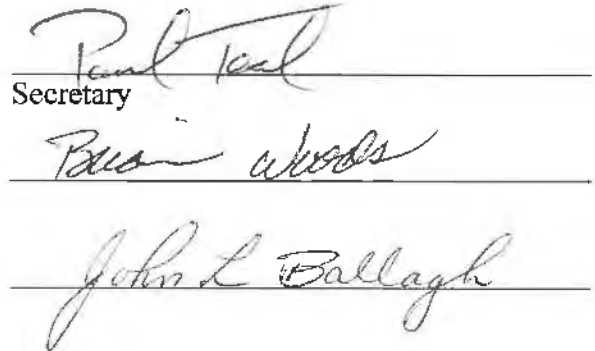 Paul Teal
Secretary
Brian Woods
John L Ballagh